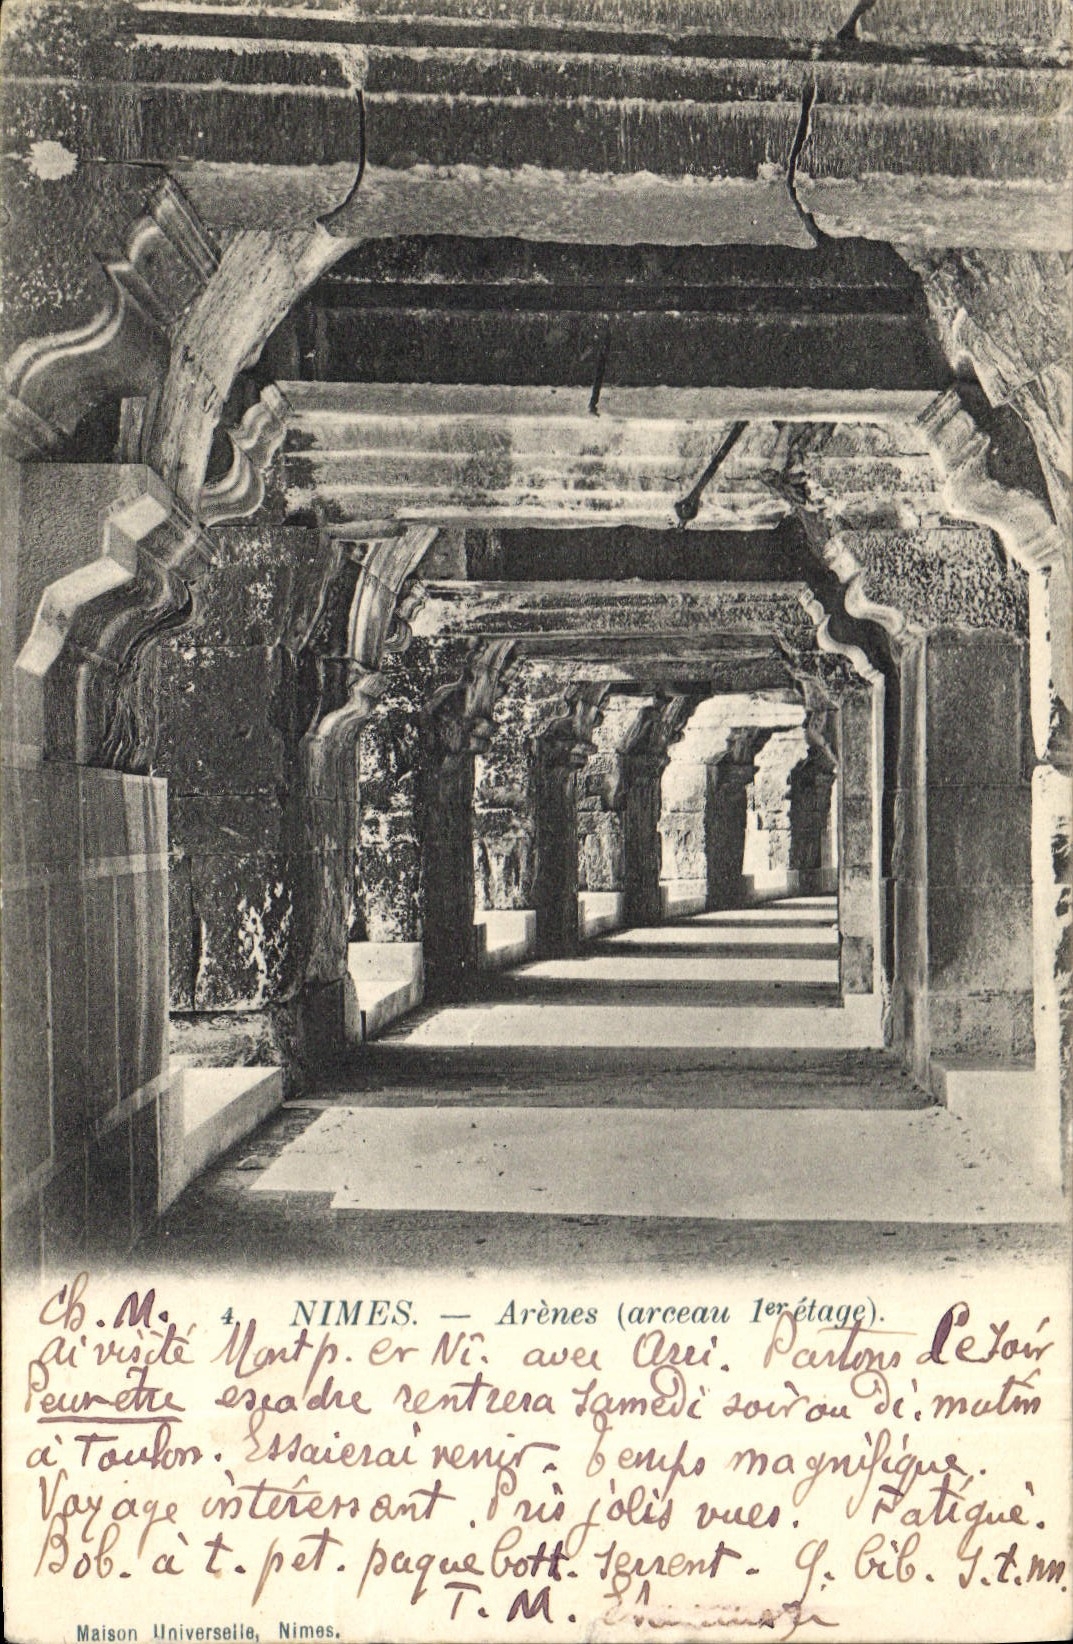 4. NIMES. — Arènes (arceau 1er étage).
Ch. M.
ai visité Montp. et Nî. avec Arri. Partons ce soir
Peut-être escadre rentrera samedi soir ou di. matin
à Toulon. Essaierai venir. Temps magnifique.
Voyage intéressant. Pris jolis vues. Fatigué.
Bob. à t. pet. paquebott. serrent. G. bib. S.t.
T. M.
Maison Universelle, Nimes.